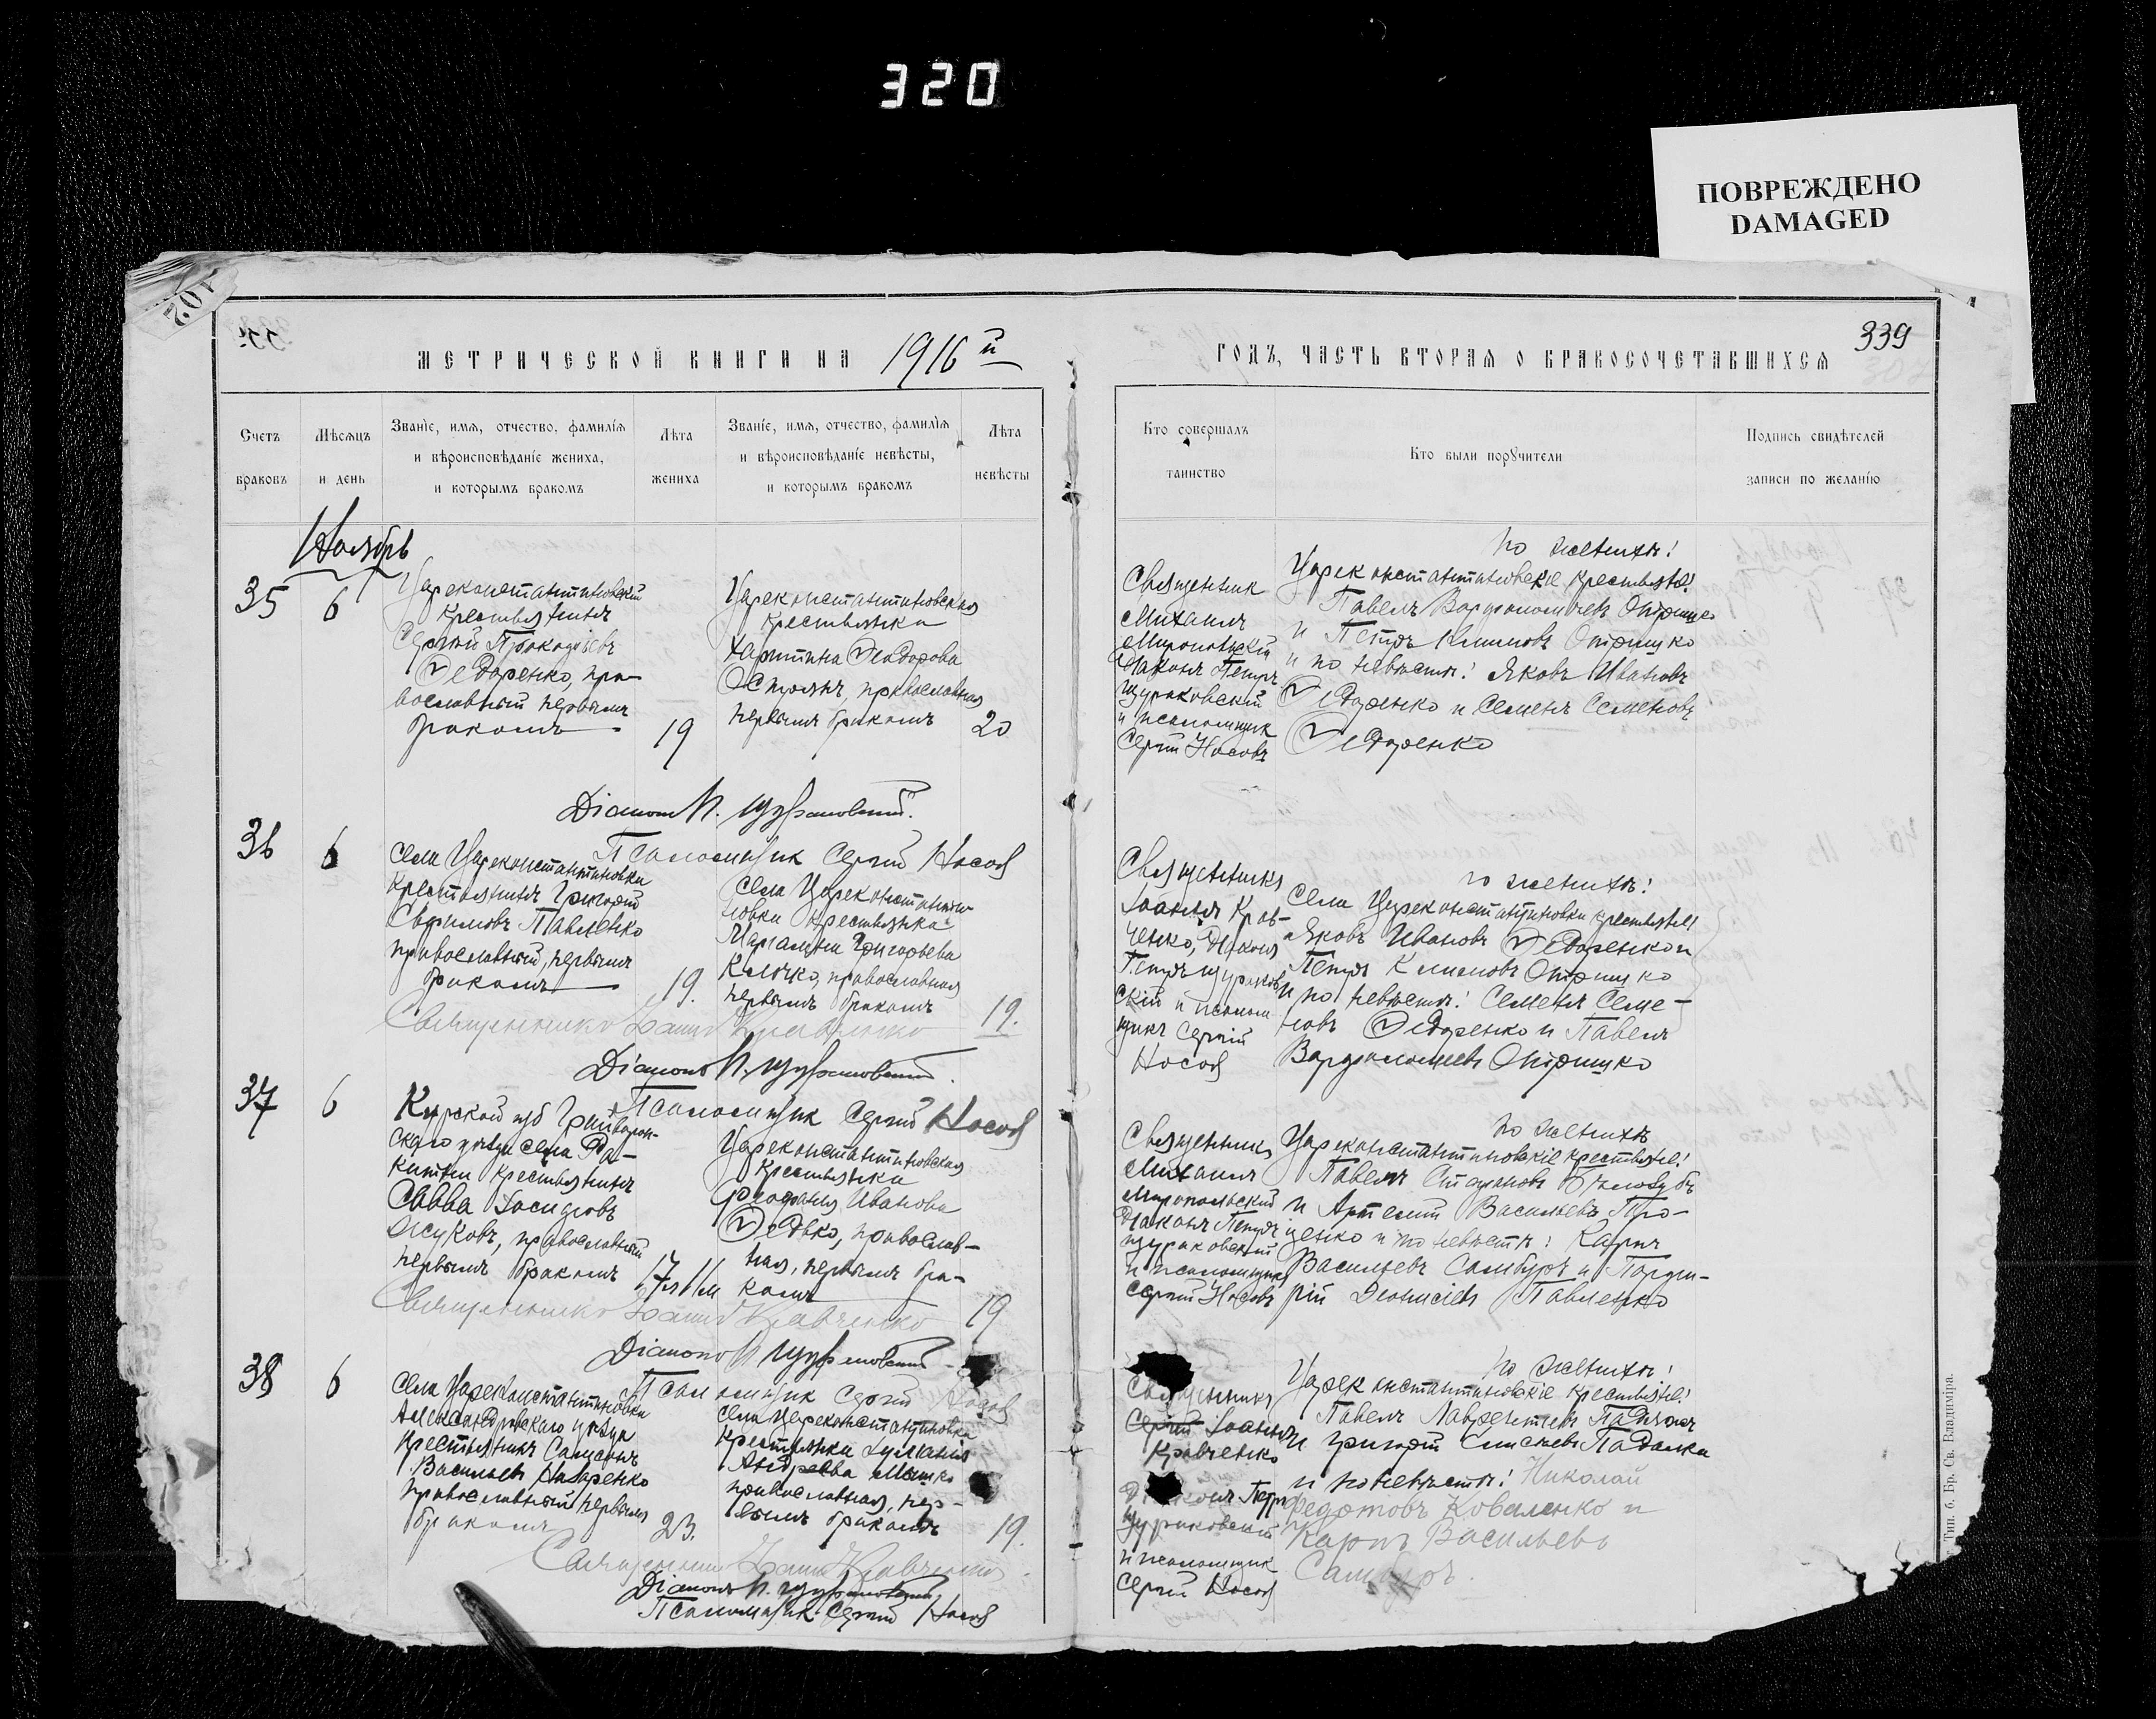 320
ПОВРЕЖДЕНО
DAMAGED
102
339
МЕТРИЧЕСКОЙ КНИГИ НА 1916 й
ГОДЪ, ЧАСТЬ ВТОРАЯ О БРАКОСОЧЕТАВШИХСЯ
Счетъ браковъ
Мѣсяцъ и день
Званіе, имя, отчество, фамилія и вѣроисповѣданіе жениха, и которымъ бракомъ
Лѣта жениха
Званіе, имя, отчество, фамилія и вѣроисповѣданіе невѣсты, и которымъ бракомъ
Лѣта невѣсты
Кто совершалъ таинство
Кто были поручители
Подпись свидѣтелей записи по желанію
Ноябрь
35
6
Цареконстантиновскій
крестьянинъ
Сергій Прокопіевъ
Ѳедоренко, пра-
вославный первымъ
бракомъ
19
Цареконстантиновская
крестьянка
Харитина Ѳеодорова
православная
первымъ бракомъ
20
Священник
Михаилъ
Миропольскій
Діаконъ Петръ
Цураковский
и псаломщик
Сергій Носовъ
по женихѣ:
Цареконстантиновскіе крестьяне:
Павелъ Варфоломеевъ Онѣшко
и Петръ Климовъ Онѣшко
и по невѣстѣ: Яковъ Ивановъ
Ѳедоренко и Семенъ Семеновъ
Ѳедоренко
Діаконъ П. Цураковский.
Псаломщик Сергій Носовъ
36
6
села Цареконстантиновки
крестьянинъ Григорій
Ефимовъ Павленко
православный, первымъ
бракомъ
19.
села Цареконстанти-
новки крестьянка
Григорьева
православная
первымъ бракомъ
19.
Священникъ
Іоаннъ Крав-
ченко, Діаконъ
Петръ Цураков-
скій и псалом-
щикъ Сергій
Носовъ
по женихѣ:
Села Цареконстантиновки крестьяне:
Яковъ Ивановъ Ѳедоренко и
Петръ Климовъ Онѣшко
и по невѣстѣ: Семенъ Семе-
новъ Ѳедоренко и Павелъ
Варфоломеевъ Онѣшко
Священникъ Іоаннъ Кравченко
Діаконъ П. Цураковский.
Псаломщик Сергій Носовъ
37
6
Курской губ Грайворон-
скаго уѣзда села Ра-
китни крестьянинъ
Савва
Жуковъ, православный
первымъ бракомъ
17
Цареконстантиновская
крестьянка
Ивановна
Ѳедько, православ-
ная, первымъ бра-
комъ
19
Священникъ
Михаилъ
Миропольский
Діаконъ Петръ
Цураковский
и псаломщик
Сергій Носовъ
по женихѣ
Цареконстантиновскіе крестьяне:
Павелъ Стефановъ Бѣловубъ
и Артемій Васильевъ Про-
ценко и по невѣстѣ: Карпъ
Васильевъ Самбуръ и Порфи-
рій Діонисіевъ Павленко
Священникъ Іоаннъ Кравченко
Діаконъ П Цураковский
Псаломщик Сергій Носовъ
38
6
Села Цареконстантиновки
Александровскаго уѣзда
крестьянинъ Сампсонъ
Васильевъ Назаренко
православный первымъ
бракомъ
23.
села Цареконстантиновки
крестьянка
Андреева
православная, пер-
вымъ бракомъ
19.
Священникъ
Сергій Іоаннъ
Кравченко
Діаконъ Петръ
Цураковский
и псаломщик
Сергій Носовъ
по женихѣ:
Цареконстантиновскіе крестьяне:
Павелъ Лаврентіевъ
и Григорій Падалка
и по невѣстѣ: Николай
Федотовъ Коваленко и
Карпъ Васильевъ
Самбуръ.
Священникъ Іоаннъ Кравченко
Діаконъ П. Цураковский.
Псаломщик Сергій Носовъ
Тип. б. Бр. Св. Владиміра.